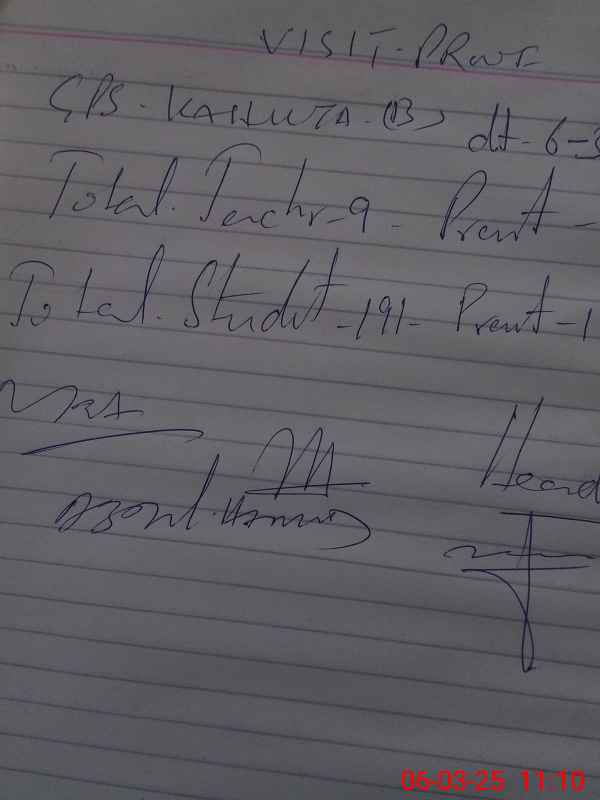 VISIT-PROOF
GPS. KAHUTA. (B) dt-6-3
Total. Teachr-9- Presnt-
Total. Studnt-191- Presnt-1
Head
06-03-25 11:10